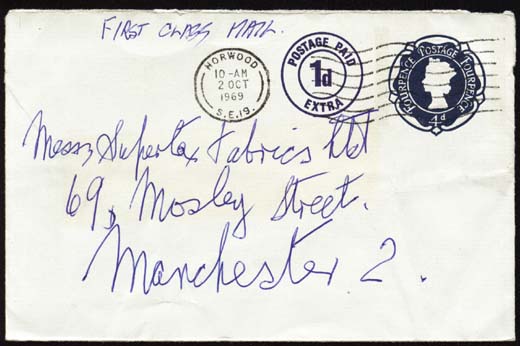 FIRST CLASS MAIL.
NORWOOD
10-AM
2 OCT
1969
S.E.19.
POSTAGE PAID
1d
EXTRA
FOURPENCE POSTAGE FOURPENCE
4d
Messrs Supertex Fabrics Ltd
69, Mosley Street.
Manchester 2.